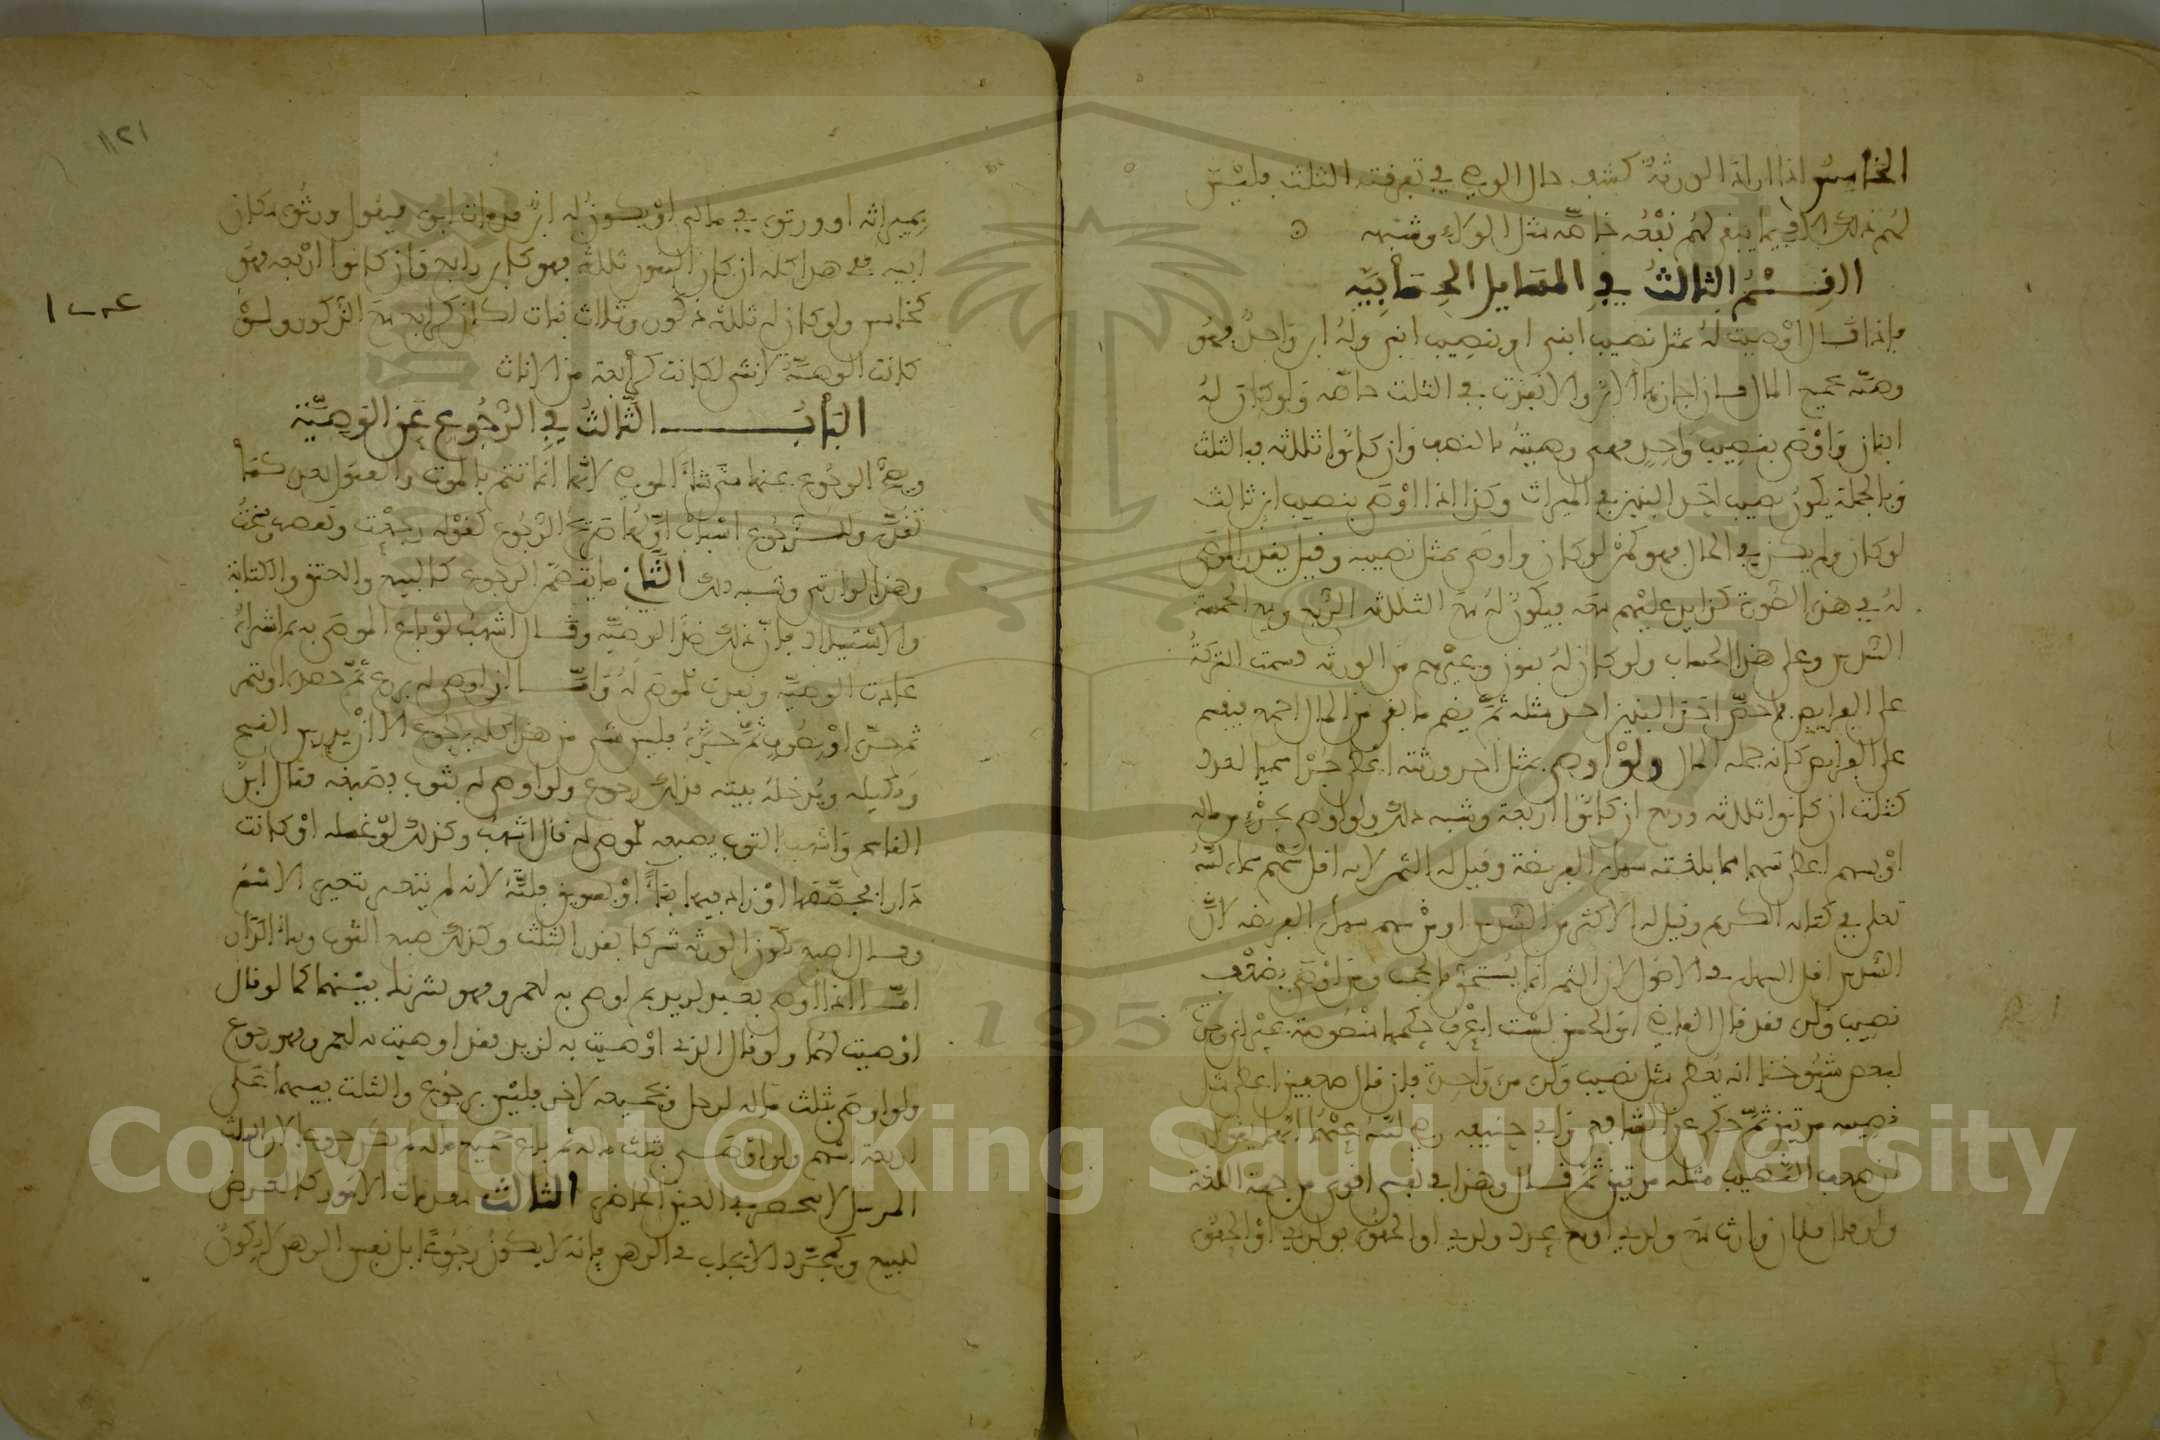 الخامس اذا اراد الورثة كشف حال الوصي في تعرفته الثلث فليس
لهم ذلك الا فيما يبقى لهم نفعه خاصّة مثل الولاء وشبهه
القسم الثالث في المسايل الحسابيّة
فاذا قال اوصيت له بمثل نصيب ابني او بنصيب ابني وله ابن واحد فهو
وصيّة بجميع المال فان اجازها الابن والا نفذت في الثلث خاصّة ولو كان له
ابنان واوصى بنصيب واحد فهي وصيّة بالنصف وان كانوا ثلاثة فبالثلث
وبالجملة يكون نصيب احد البنين في الميراث وكذا اذا اوصى بنصيب ابن ثالث
لو كان ولم يكن في الحال فهو كمن لو كان واوصى بمثل نصيبه وقيل يقدر الموصى
له في هذه الصورة كزايد عليهم معه فيكون له مع الثلاثة الربع ومع الخمسة
السدس وعلى هذا الحساب ولو كان له بنون وغيرهم من الورثة قسمت التركة
على الفرايض فما حصّ احد البنين اخذ مثله ثمّ يضم ما بقي من المال اجمع فيقسم
على الفرايض كانه جملة المال ولو اوصى بمثل احد ورثته اعطي جزءا سميا لعدد
كثلث ان كانوا ثلاثة وربع ان كانوا اربعة وشبه ذلك ولو اوصى بجزء من ماله
او بسهم اعطي سهما مما بلغته سهام الفريضة وقيل له الثمن لانه اقل سهم سماه الله
تعلى في كتابه الكريم وقيل له الاكثر من السدس او من سهم سهام الفريضة لانّ
السدس اقل السهام في الاصول لان الثمن انما يستحق بالحجب ومن اوصى بضعف
نصيب ولده فقد قال القاضي ابو الحسن لست اعرف حكمها منصوصة غير اني وجدت
لبعض شيوخنا انه يعطى مثل نصيب ولده مرة واحدة فان قال ضعفين اعطي مثل
نصيبه مرتين ثمّ حكى عن الشافعي وابي حنيفة رضي الله عنهما انهما يقولان
ان ضعف النصيب مثله مرتين ثمّ قال وهذا في نفسي اقوى من جهة اللغة
ولو قال فلان وارث مع ولدي او مع عدد ولدي او الحقوه بولدي او الحقوه
بميراثه او ورثوه في مالي او يكون له ابن قد مات ابوه فيقول ورثوه مكان
ابيه ففي هذا كله ان كان البنون ثلاثة فهو كابن رابع وان كانوا اربعة فهو
كخامس ولو كان له ثلاثة ذكور وثلاث بنات لكان كرابع مع الذكور ولو
كانت الوصيّة لانثى لكانت كرابعة من الاناث
البــاب الثّالث في الرّجوع عن الوصيّة
ويصحّ الرجوع عنها متى شاء الموصي لانّها انما تتم بالموت والقبول بعده كما
تقدّم وللرجوع اسباب اوّلها صريح الرّجوع كقوله رجعت ونقضت وفسخت
وهذا لوارثي وشبه ذلك الثاني ما يتضمّن الرجوع كالبيع والعتق والكتابة
والاستيلاد فانّ ذلك ضدّ الوصيّة وقال اشهب لو باع الموصى به ثم اشتراه
عادت الوصيّة ونفذت للموصى له وامّا ان اوصى له بزرع ثمّ حصده او بتمر
ثم جدّه او بصوف ثمّ جزّه فليس شيء من هذا كله برجوع الا ان يدرس القمح
ويكيله ويدخله بيته فذلك رجوع ولو اوصى له بثوب فصبغه فقال ابن
القاسم واشهب الثوب بصبغه للموصى له قال اشهب وكذلك لو غسله او كانت
دارا فجصّصها او زاد فيها بناء او بسويق فلتّه لانه لم يتغير بتغيره الاسم
وقال اصبغ يكون الورثة شركاء بقدر الثلث وكذلك صبغ الثوب وبناء الدار
امّا اذا اوصى بعبد لزيد ثم اوصى به لعمرو فهو مشترك بينهما كما لو قال
اوصيت لهما ولو قال الذي اوصيت به لزيد فقد اوصيت به لعمرو فهو رجوع
ولو اوصى بثلث ماله لرجل وبجميعه لاخر فليس برجوع والثلث بينهما على
اربعة اسهم ولو اوصى بثلث ماله ثم باع جميع ماله لم يكن رجوعا لان الثلث
المرسل لا ينحصر في العين الحاضرة الثالث مقدمات الامور كالعرض
للبيع وكمجرّد الايجاب في الرهن فانه لا يكون رجوعا بل نفس الرهن لا يكون
Copyright © King Saud University
1957